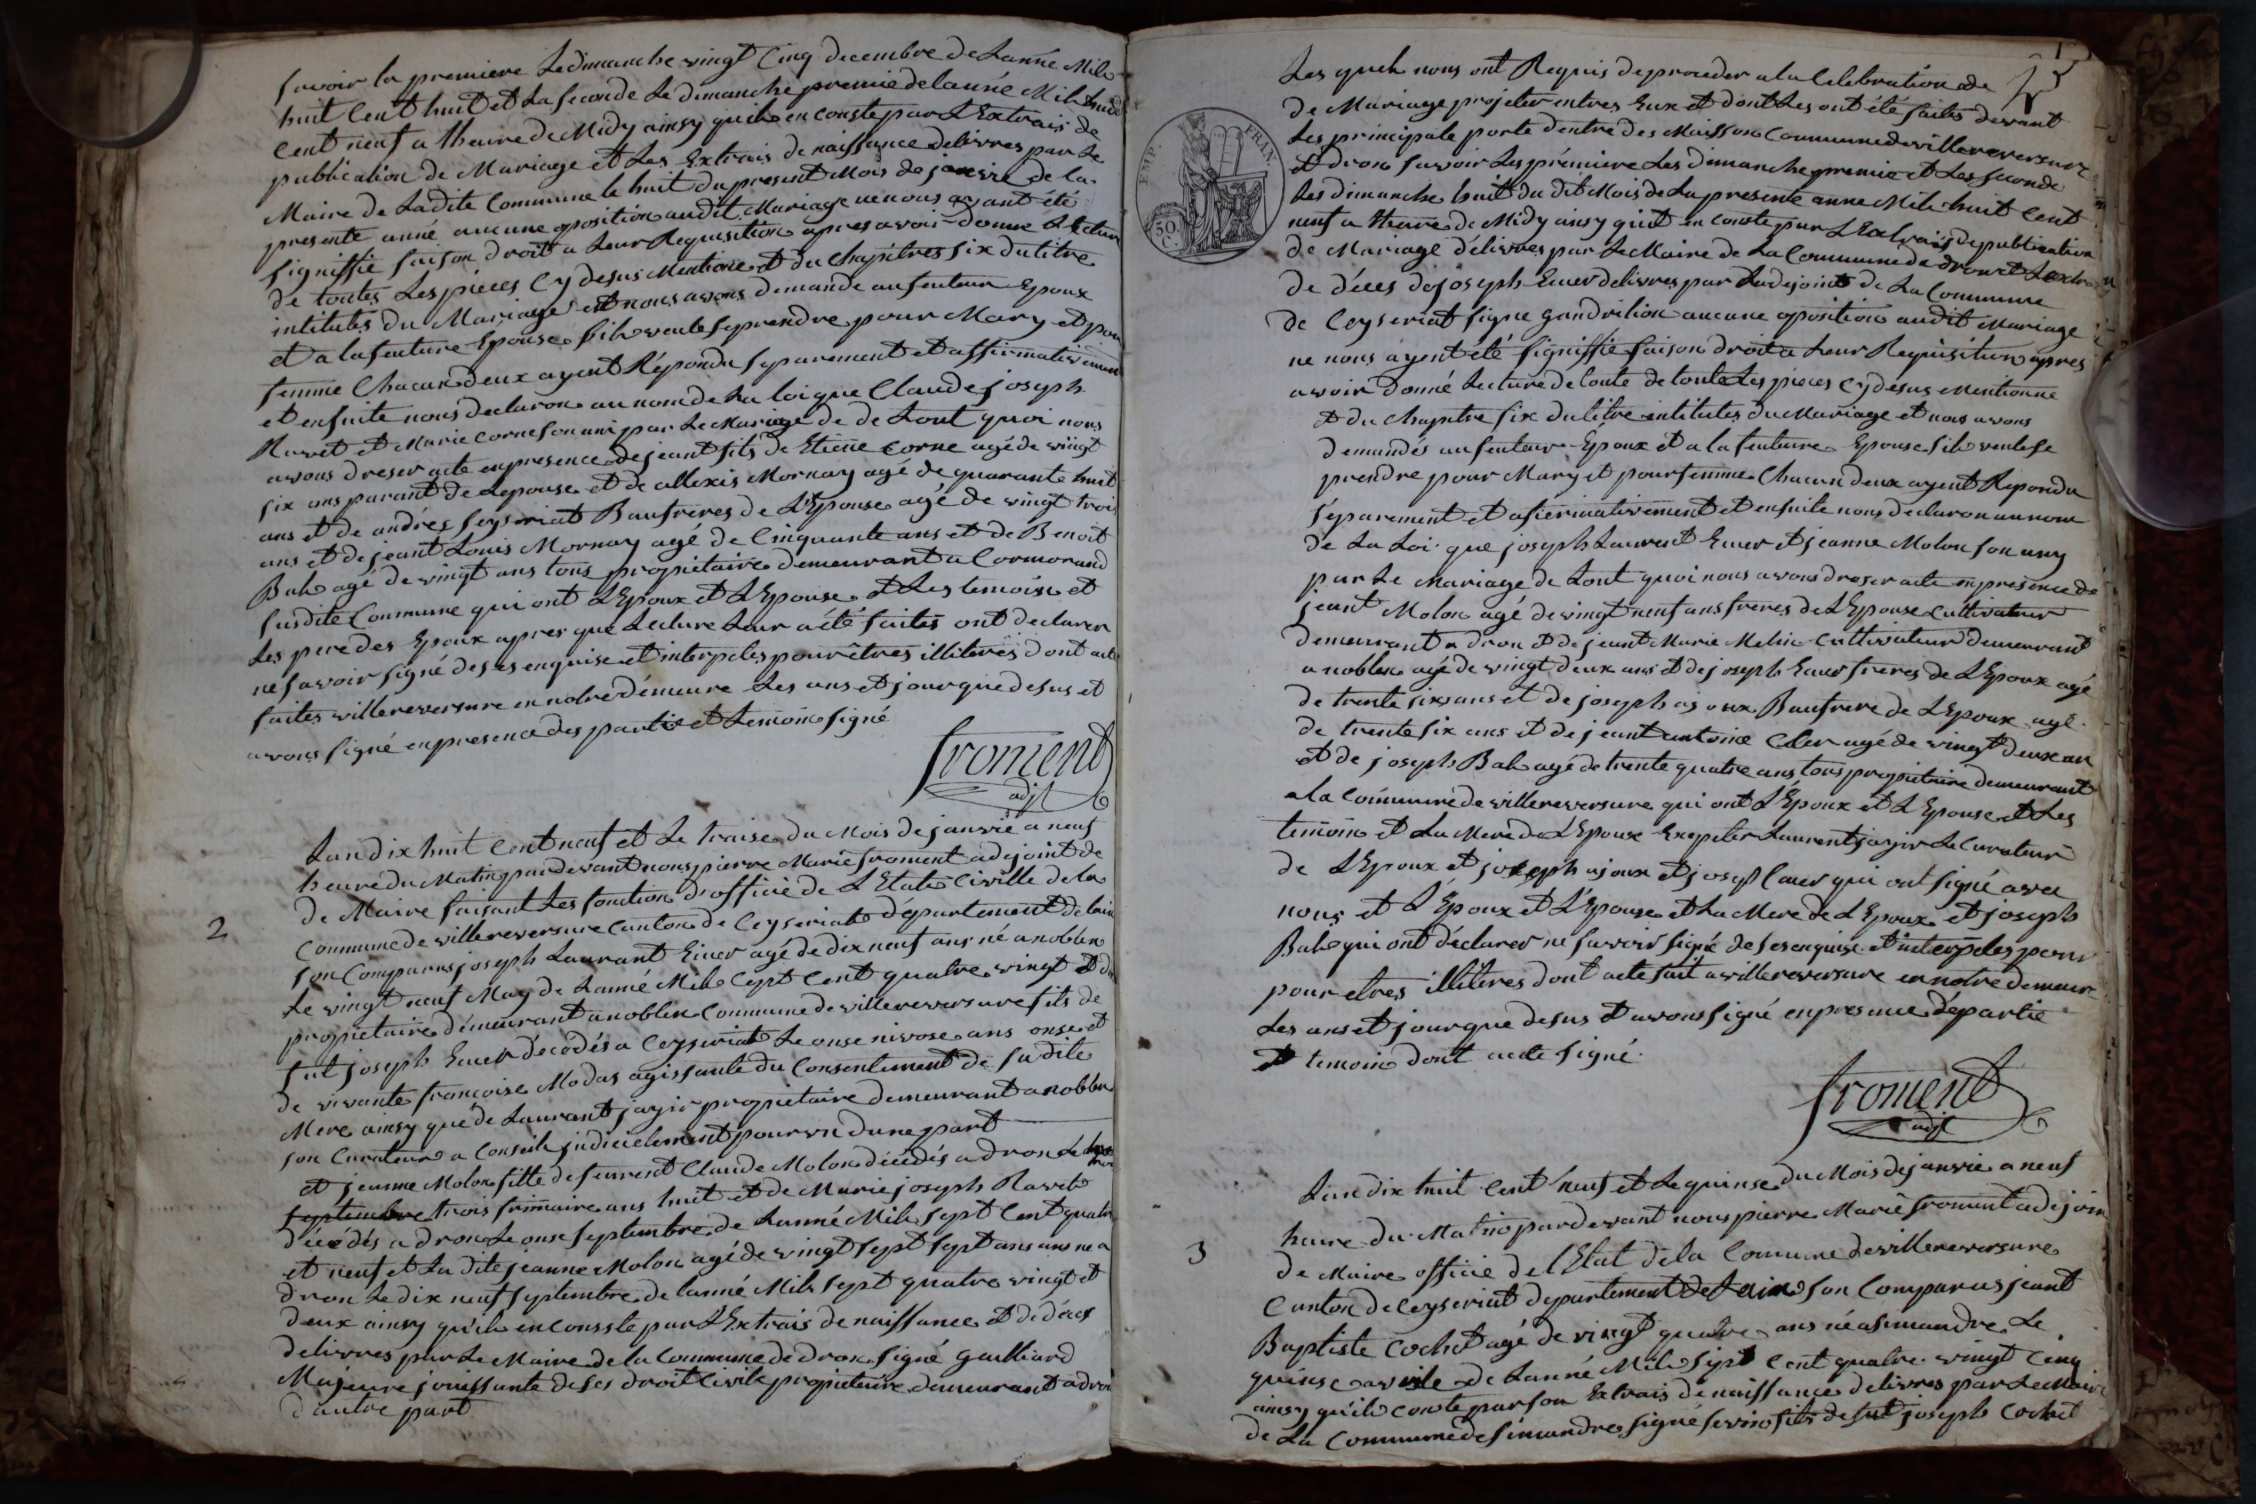 savoir la premiere Le dimanche vingt Cinq decembre de Lanné Mile
huit Cent huit et La seconde Le dimanche premie de lanné Mile huit
Cent neuf a lheure de Midy ainsy quil en conste par L'Extrais de
publication de Mariage et Les Extrais de naissance delivres par Le
Maire de Ladite Commune le huit du present Mois de janvie de la
presente anné aucune oposition audit Mariage ne nous ayant été
signiffié faison droit a Leur Requisition apres avoir donné Lecture
de toutes Les pieces Cy desus Mentioné et du Chapitres six du titre
intitutes du Mariage et nous avons demande au futeur Epoux
et a la future Epouse sil veule se prendre pour Mary et pour
femme Chacun deux ayent Répondu separement et affirmativement
et ensuite nous declaron au nom de La loi que Claude joseph
Ravet et Marie Corne son uni par Le Mariage de de Tout quoi nous
avons dreser acte en presence de jeant fils de Etiene Corne agé de vingt
six ans parant de Lepouse et de allexis Mornay agé de quarante huit
ans et de andrés Ceyseriat Baufreres de L'Epouse agé de vingt trois
ans et de jeant Louis Mornay agé de Cinquante ans et de Benoit
Bal agé de vingt ans tous propiétaire demeurant a Cormorand
susdite Commune qui ont L'Epoux et L'Epouse et Les temoise et
Les pere des Epoux apres que Lecture Leur a été faites ont declarer
ne savoir signé de ses enquise et interpeles pour êtres illiteres dont acte
faites villereversure en notre démeure Les ans et jour que desus et
avons signé en presence des partie et Temoin signé
froment
adjt
2
Lan dix huit Cent neuf et Le traise du Mois de janvié a neuf
heure du Matin par devant nous pierre Marie froment adejoint de
de Maire faisant Les fonction d'officié de L'Etate Civille de la
Commune de villereversure Canton de Ceyseriat département de lain
son Comparus joseph Laurant Ecuer agé de dix neuf ans né a noblen
Le vingt neuf May de Lanné Mile Cept Cent quatre vingt et dix
propietaire démeurant a noblen Commune de villereversure fils de
fut joseph Ecuer décédés a Ceyseriat Le onse nivose ans onse et
de vivante francoise Modas agissante du Consentiment de sa dite
Mere ainsy que de Laurant jayr propietaire demeurant a noblen
son Curateur a Conseil judicielement pourvu dune part
et jeanne Molon fille de feu vent Claude Molon décédés a dron Le
septembre trois frimaire ans huit et de Marie joseph Ravet
décédés a dron Le onse septembre de Lanné Mile sept Cent quatre
et neuf et La dite jeanne Molon agé de vingt sept sept ans ans ne a
dron Le dix neuf septembre de lanné Mile sept quatre vingt et
deux ainsy quil en consste par L'Extrais de naissance et de déces
delivres par Le Maire de la Commune de dron signé gailliard
Majeure jouissante de ses droit Civile propietaire demeurant a dron
d'autre part
Les quels nous ont Requis de proceder a la Celebration de
de Mariage projeter entres Eux et dont Les ont été faites devant
Les principale porte dentré des Maisson Commune de villereversure
et dron savoir Les prémiere Les dimanche premie et Les seconde
Les dimanche huit du dit Mois de La presente anné Mile huit Cent
neuf a Heure de Midy ainsy quil en conste par L'Extrais de publication
de Mariage délivres par Le Maire de La Commune de dron et Lextrai
de déces de joseph Ecuer delivres par Ladejoint de La Commune
de Ceyseriat signe gandrilion aucune oposition audit Mariage
ne nous ayent été signiffié faison droit a Leur Requisition apres
avoir donné Lecture de toute de toute Les pieces Cy desus Mentionne
et du Chapitre six du titre intitutes du Mariage et nous avons
demandés au futeur Epoux et a la future Epouse sil veule se
prendre pour Mary et pour femme Chacun deux ayent Répondu
séparement et afierimativement et ensuite nous declaron au nom
de La Loi que joseph Laurent Ecuer et jeanne Molon son uny
par Le Mariage de Tout quoi nous avons dreser acte en presence de
jeant Molon agé de vingt neuf ans freres de L'Epouse Cultivateur
demeurant a dron et de jeant Marie Melin Cultivateur demeurant
a noblen agé de vingt deux ans et de joseph Ecuer freres de L'Epoux agé
de trente six ans et de joseph ajoux Baufrere de L'Epoux agé
de trente six ans et de jeant antoine Cler agé de vingt deux an
et de joseph Bal agé de trente quatre ans tous propietaire demeurant
a la Commune de villereversure qui ont L'Epoux et L'Epouse et Les
temoin et La Mere de L'Epoux Exepter Laurent jayr Le Curateur
de L'Epoux et joseph ajoux et joseph Ecuer qui ont signé avec
nous et L'Epoux et L'Epouse et La Mere de L'Epoux et joseph
Bal qui ont déclarer ne savoir signé de ses enquise et interpeles pour
pour etres illiteres dont acte fait a villereversure en notre demeure
Les ans et jour que desus et avons signé en presence dé partie
et temoin dont acte signé
froment
adjt
3
Lan dix huit Cent neuf et Le quinse du Mois de janvié a neuf
heure du Matin par devant nous pierre Marie froment adejoin
de Maire officié de l'Etat de la Commune de villereversure
Canton de Ceyseriat departement de Lain son Comparus jeant
Baptiste Cochet agé de vingt quatre ans né a simandre Le
quinse avrile de Lanné Mile sept Cent quatre vingt Cinq
ainsy quil conste par son Extrais de naissance delivres par Le Maire
de La Commune de simandre signé sevin fils de fut joseph Cochet
EMP. FRAN.
50 C.